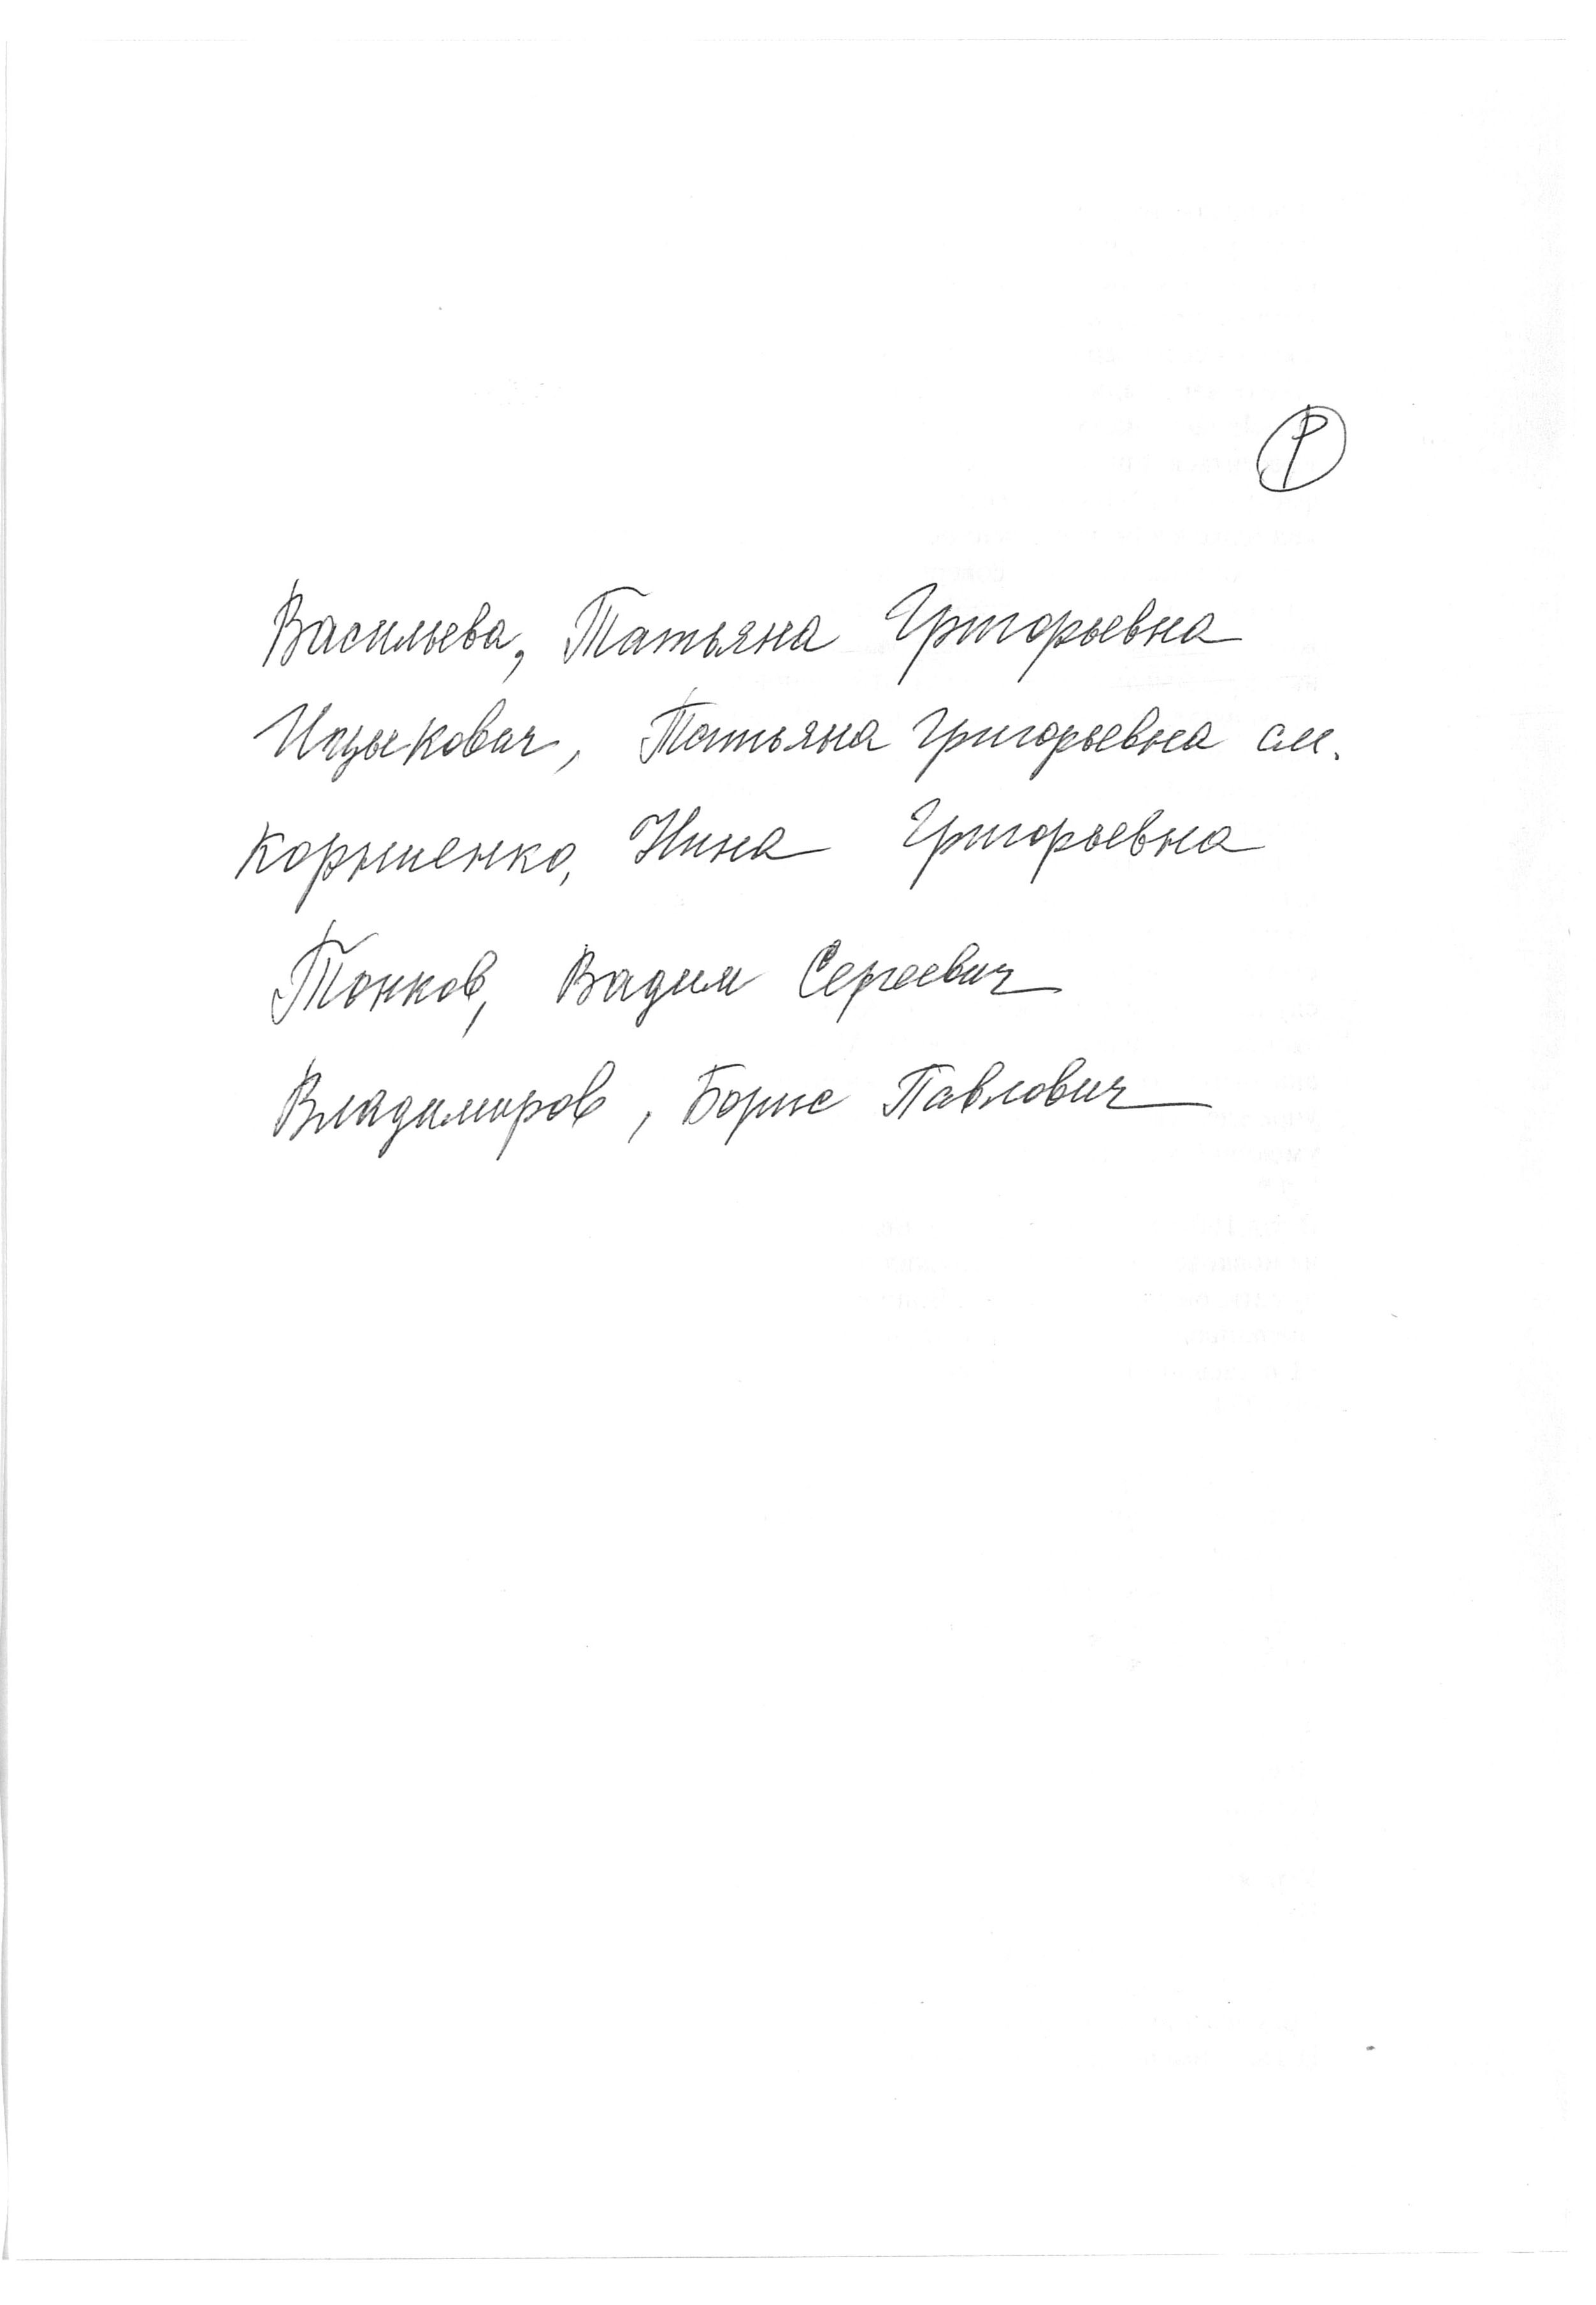 Ф
Васильева, Татьяна Григорьевна
Ицыкович, Татьяна Григорьевна см.
Корниенко, Нина Григорьевна
Тонков, Вадим Сергеевич
Владимиров, Борис Павлович